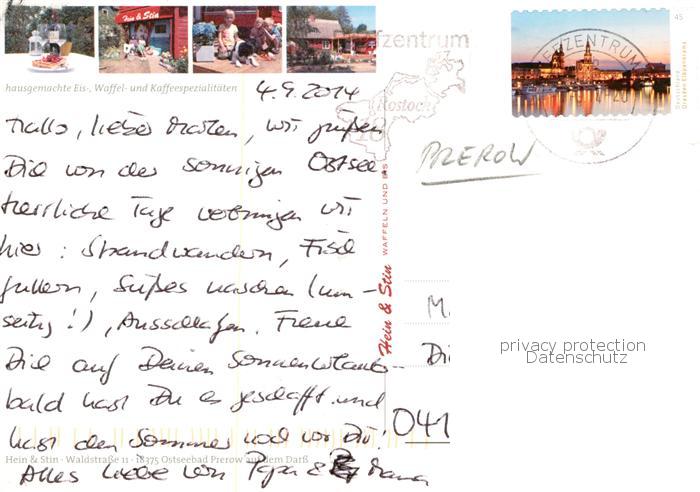 Hein & Stin
hausgemachte Eis-, Waffel- und Kaffeespezialitäten
4.9.2014
Hallo, lieber Maren, wir grüßen
Dich von der sonnigen Ostsee.
Herrliche Tage verbringen wir
hier: Strandwandern, Fisch
futtern, Süßes naschen (um-
seitig!), Ausschlafen. Freue
Dich auf Deinen Sonnenurlaub -
bald hast Du es geschafft und
hast den Sommer noch vor Dir!
Alles Liebe von Papa & Mama
Hein & Stin · Waldstraße 11 · 18375 Ostseebad Prerow auf dem Darß
Hein & Stin WAFFELN UND EIS
fzentrum
Rostock
18
EFZENTRUM
45
Deutschland
Dresden Elbpanorama
PREROW
M.
Di
041
privacy protection
Datenschutz